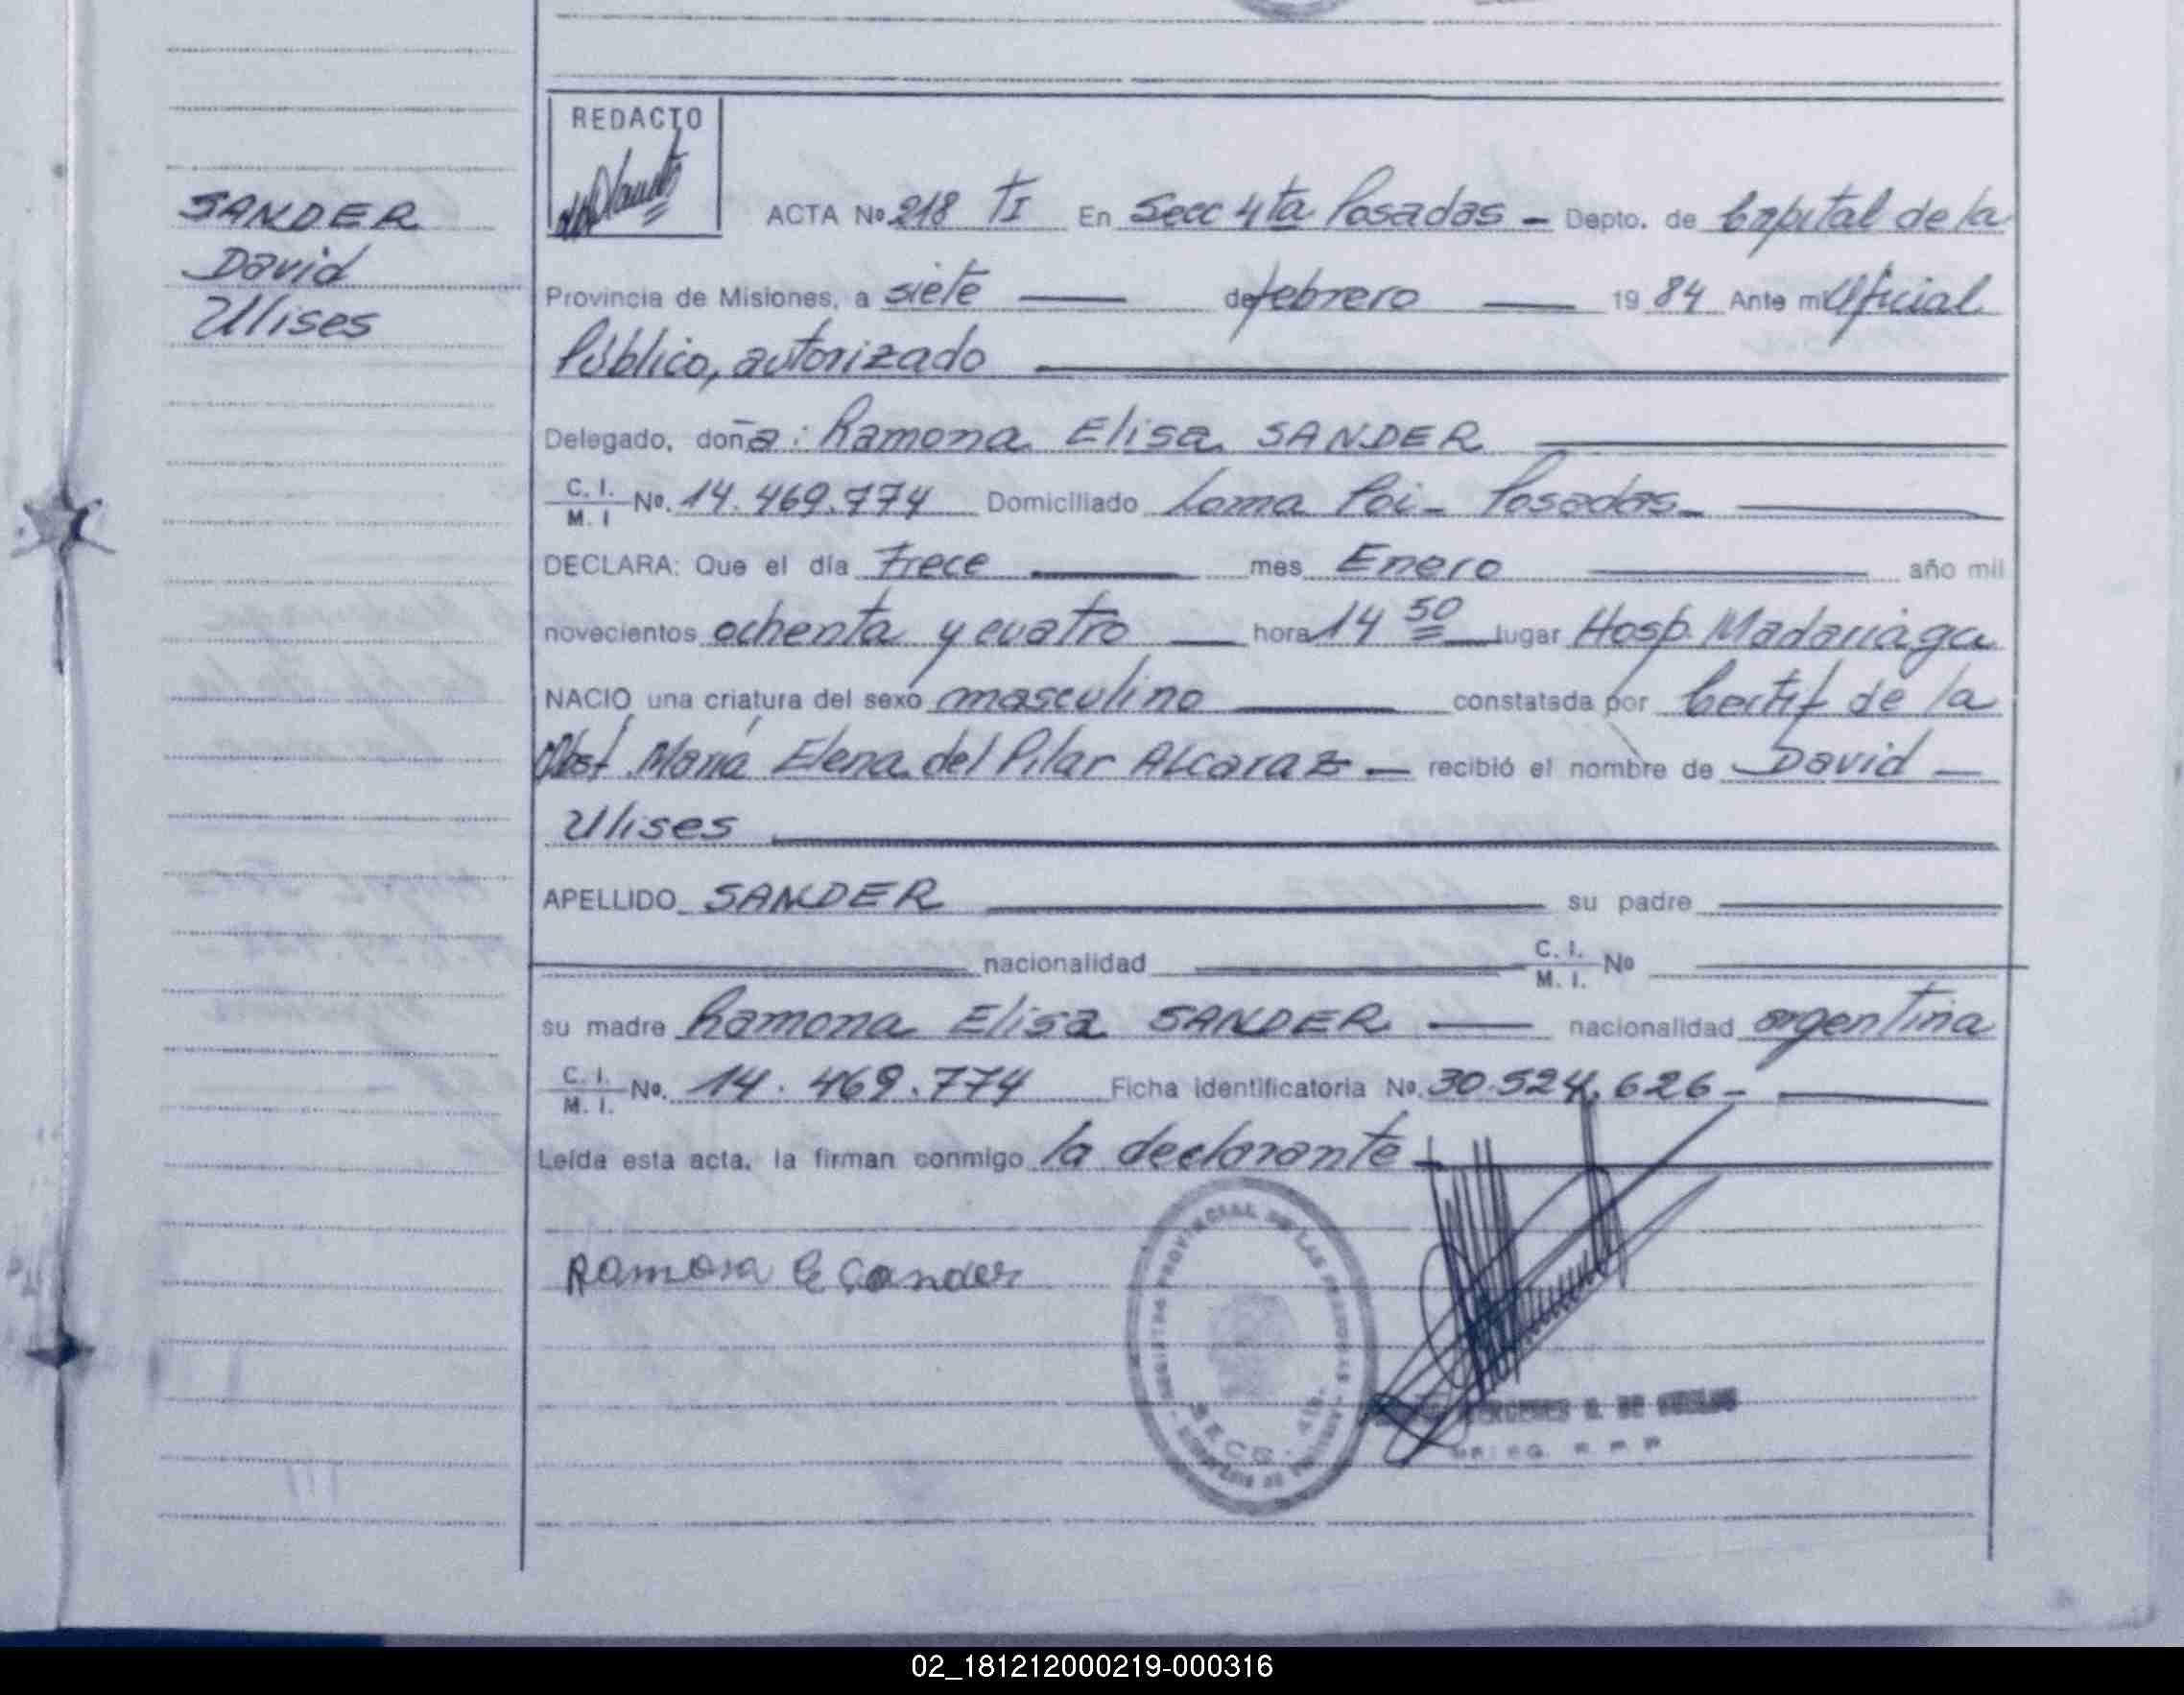 REDACTO
SANDER
David
Ulises
ACTA Nº 218 TI En Secc 4ta Posadas - Depto. de Capital de la
Provincia de Misiones, a siete de febrero 19 84 Ante mi Oficial
Público, autorizado
Delegado, doña: Ramona Elisa SANDER
C. I. M. I Nº. 14.469.774 Domiciliado Loma Poi - Posadas -
DECLARA: Que el día trece mes Enero año mil
novecientos ochenta y cuatro hora 14 50 lugar Hosp. Madariaga
NACIO una criatura del sexo masculino constatada por Certif de la
Obst. María Elena del Pilar ALcaraz - recibió el nombre de David -
Ulises
APELLIDO SANDER su padre
nacionalidad C. I. M. I. Nº
su madre Ramona Elisa SANDER nacionalidad argentina
C. I. M. I. Nº. 14.469.774 Ficha identificatoria Nº. 30.524.626 -
Leida esta acta, la firman conmigo la declarante
Ramona E Sander
REGISTRO PROVINCIAL DE LAS PERSONAS
SECC. 4ta.
02_181212000219-000316